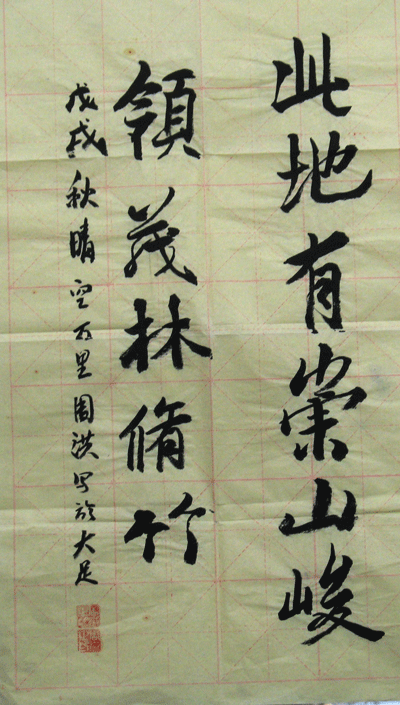 此地有崇山峻
領茂林脩竹
戊戌秋晴空万里周洪写於大足